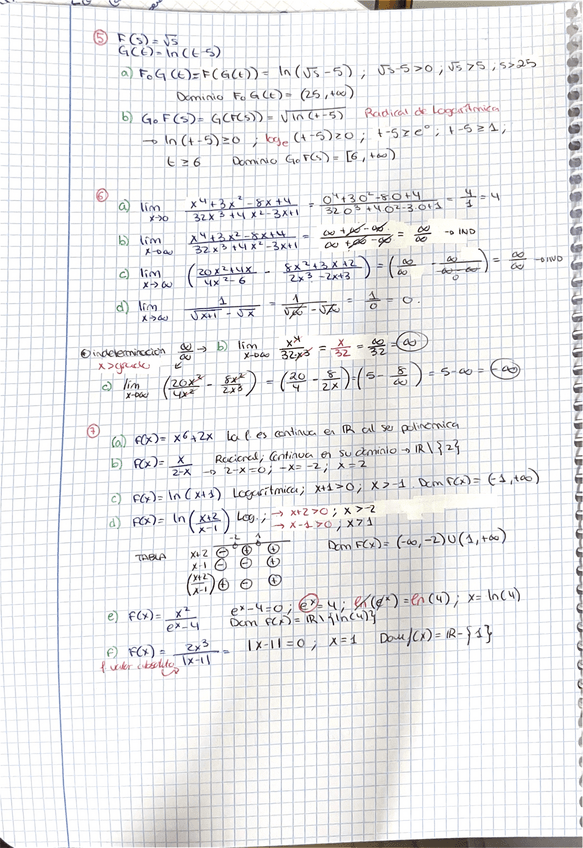 5 F(s) = √s
G(t) = ln(t-5)
a) F∘G(t) = F(G(t)) = ln(√s-5) ; √s-5>0 ; √s>5 ; s>25
Dominio F∘G(t) = (25, +∞)
b) G∘F(s) = G(F(s)) = √ln(t-5) Radical de Logarítmica
→ ln(t-5)≥0 ; log_e(t-5)≥0 ; t-5≥e⁰ ; t-5≥1 ;
t≥6 Dominio G∘F(s) = [6, +∞)
6 a) lim x→0 (x⁴+3x²-8x+4)/(32x³+4x²-3x+1) = (0⁴+3·0²-8·0+4)/(32·0³+4·0²-3·0+1) = 4/1 = 4
b) lim x→∞ (x⁴+3x²-8x+4)/(32x³+4x²-3x+1) = (∞+∞-∞)/(∞+∞-∞) = ∞/∞ → IND
c) lim x→∞ ((20x²+4x)/(4x²-6) - (8x²+3x+2)/(2x³-2x+3)) = (∞/∞ - ∞/(∞-∞)) = ∞/∞ → IND
d) lim x→∞ 1/(√x+1 - √x) = 1/(√∞ - √∞) = 1/0 = 0.
indeterminación ∞/∞ → b) lim x→∞ x⁴/32x³ = x/32 = ∞/32 = ∞
x>grande
c) lim x→∞ (20x²/4x² - 8x²/2x³) = (20/4 - 8/2x) = (5 - 8/∞) = 5-∞ = -∞
7 (a) f(x) = x⁶+2x La f es continua en ℝ al ser polinómica
b) f(x) = x/(2-x) Racional; Continua en su dominio → ℝ\{2}
→ 2-x=0 ; -x=-2 ; x=2
c) f(x) = ln(x+1) Logarítmica; x+1>0 ; x>-1 Dom f(x) = (-1, +∞)
d) f(x) = ln((x+2)/(x-1)) Log.; → x+2>0 ; x>-2
→ x-1>0 ; x>1
-2 1
TABLA x+2 - + +
x-1 - - +
(x+2/x-1) + - +
Dom F(x) = (-∞,-2)∪(1,+∞)
e) f(x) = x²/(eˣ-4) eˣ-4=0 ; eˣ=4 ; ln(eˣ) = ln(4) ; x=ln(4)
Dom f(x) = ℝ\{ln(4)}
f) f(x) = 2x³/|x-1| = |x-1|=0 ; x=1 Dom f(x) = ℝ-{1}
f valor absoluto